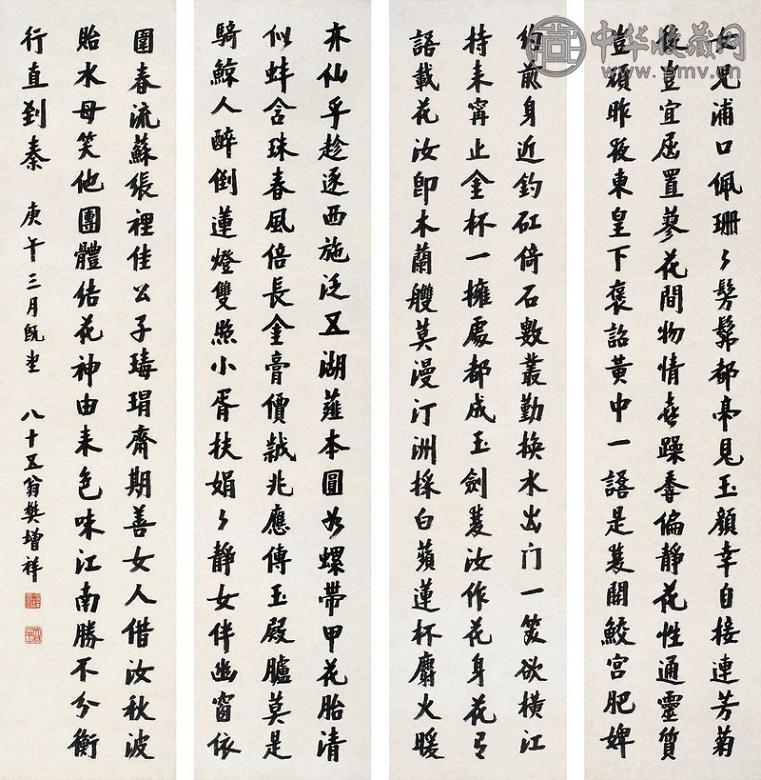 女兒浦口佩珊々髣髴都亭見玉顏幸自接連芳菊
後豈宜屈置蓼花間物情躁春偏靜花性通靈質
豈頑昨夜東皇下褒詔黃中一語是雙關鮫宮肥婢
約前身近釣矼倚石數叢勤換水出门一笑欲橫江
持来甯止金杯一擁處都成玉劍雙汝作花身花有
語載花汝即木蘭艭莫漫汀洲採白蘋蓮杯麝火暖
亦仙乎趁逐西施泛五湖薤本圓如螺帶甲花胎清
似蚌含珠春風倍長金膏價兆應傳玉殿臚莫是
騎鯨人醉倒蓮燈雙照小胥扶娟々靜女伴幽窗依
圍春流蘇張裡佳公子瑇瑁齋期善女人借汝秋波
貽水母笑他團體結花神由来色味江南勝不分衡
行直到秦 庚午三月既望 八十五翁樊增祥
中华收藏网